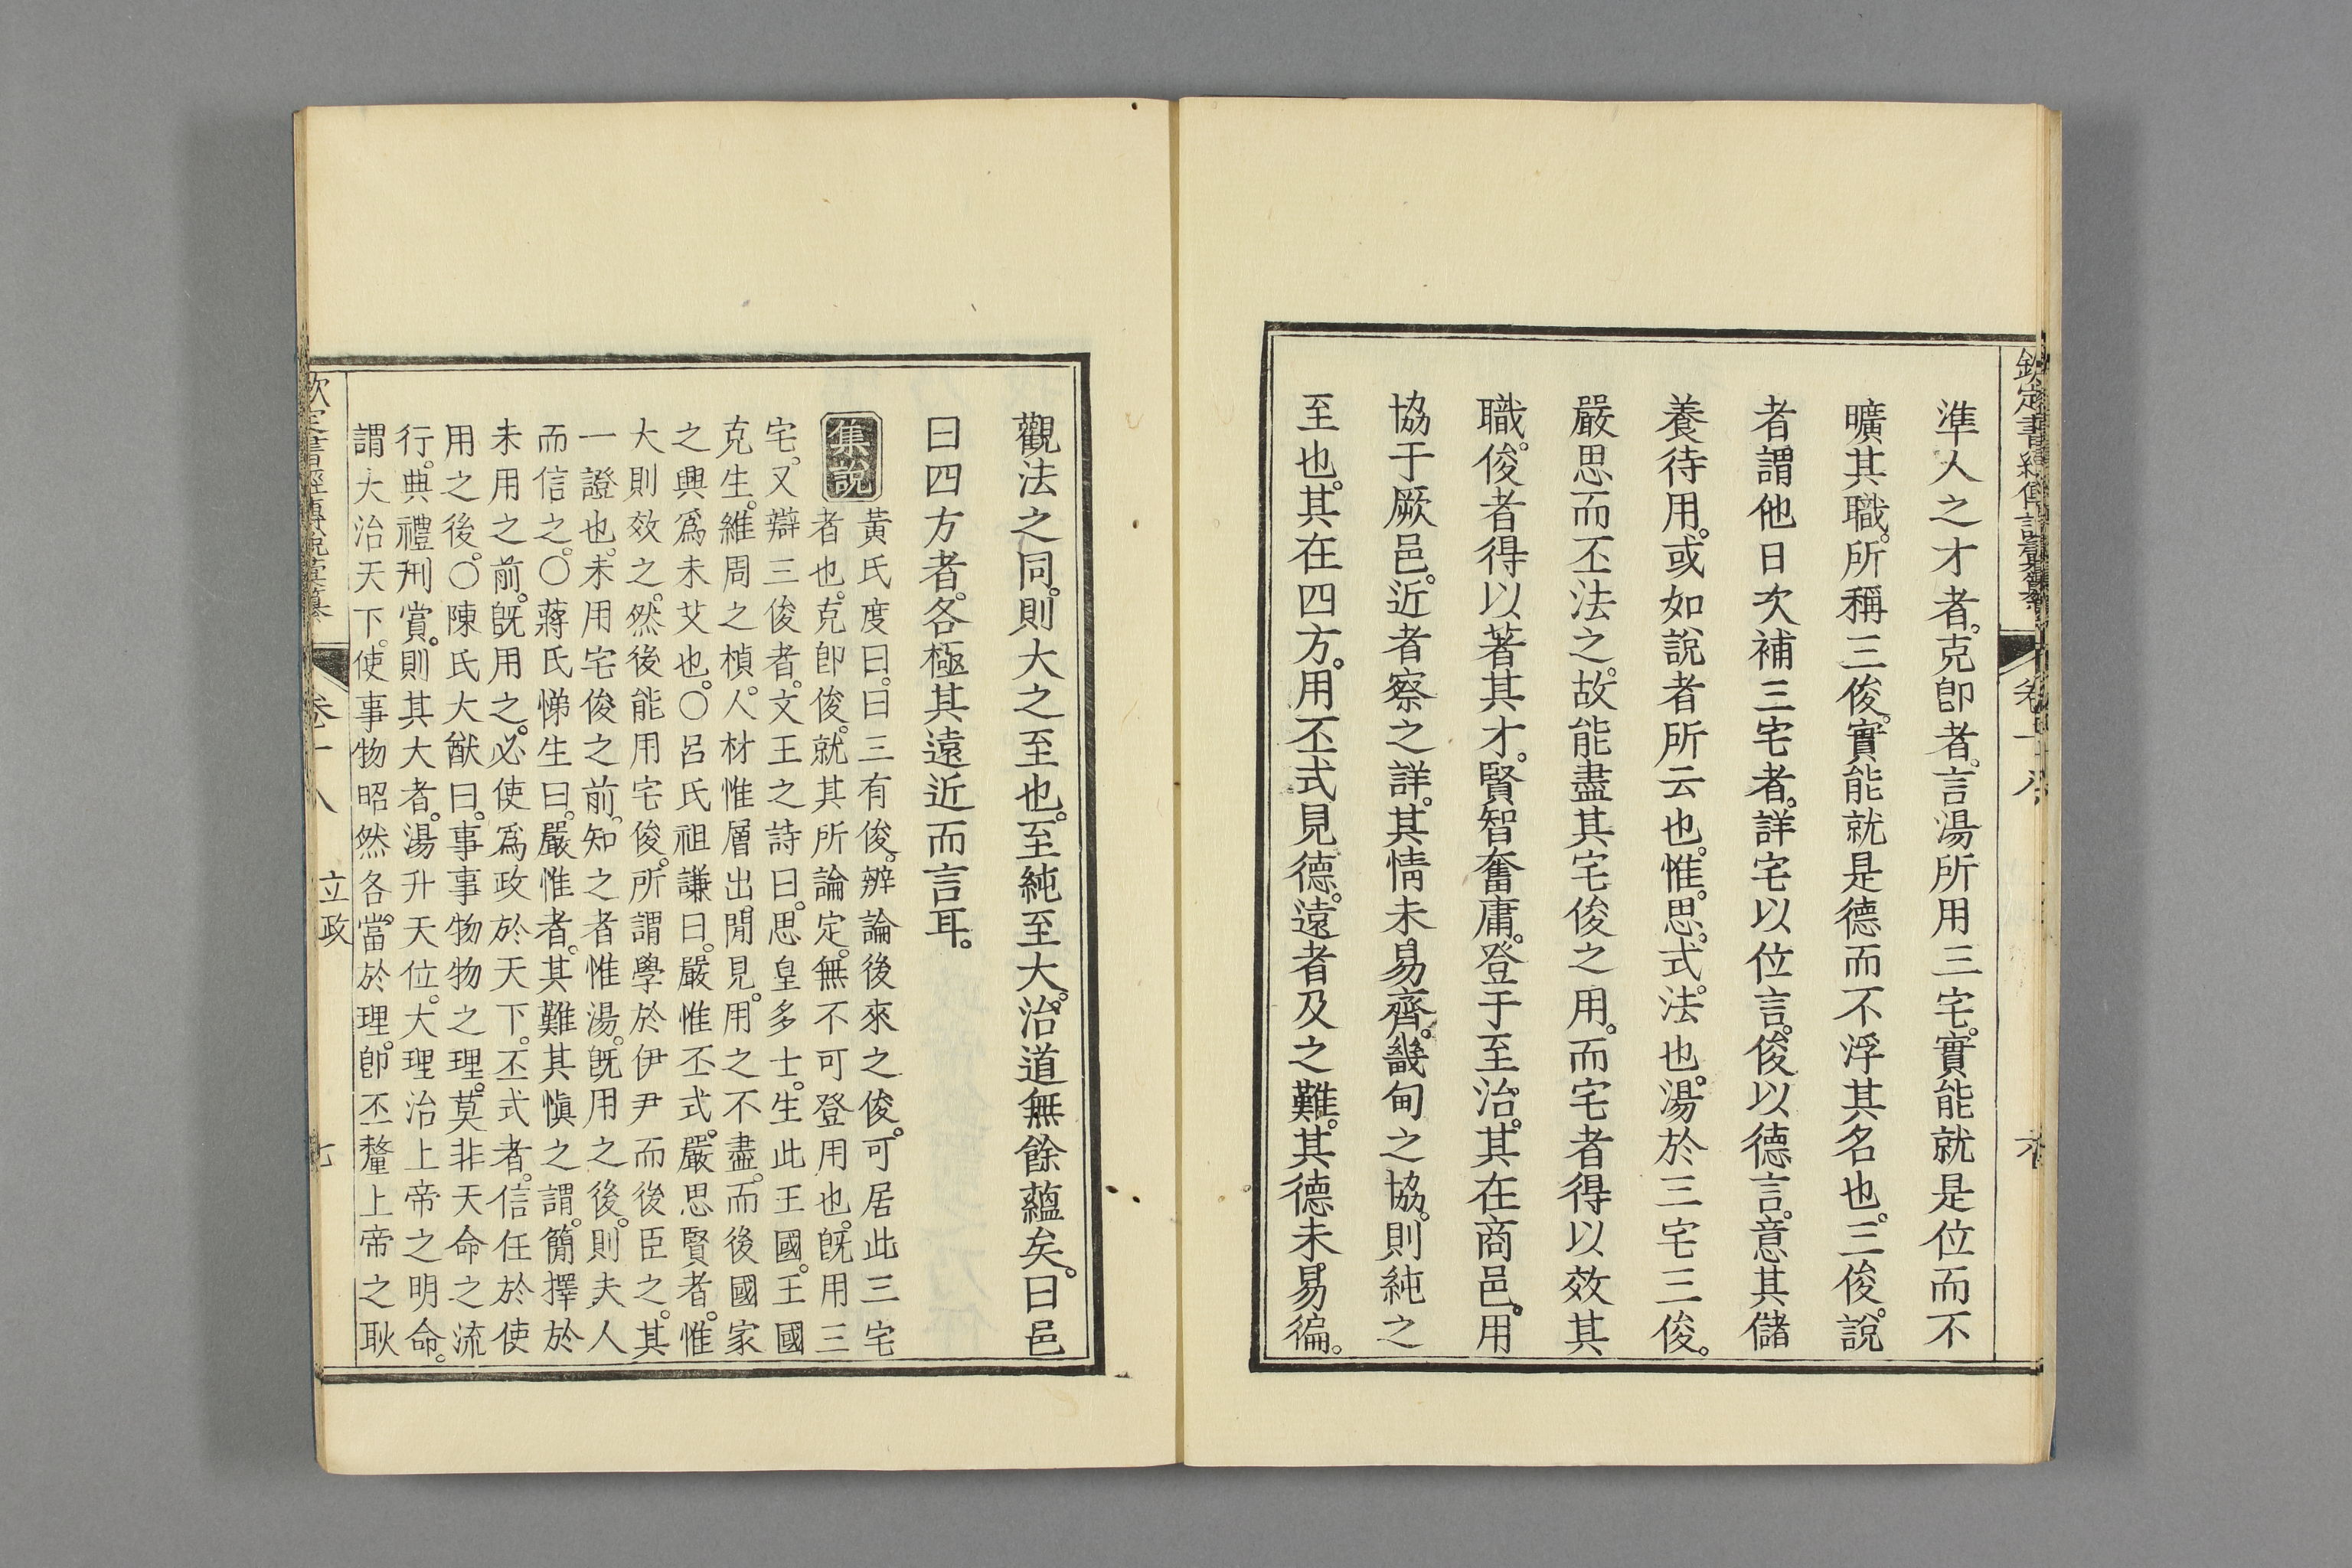 準人之才者。克卽者。言湯所用三宅。實能就是位而不
曠其職。所稱三俊。實能就是德而不浮其名也。三俊。說
者謂他日次補三宅者。詳宅以位言。俊以德言。意其儲
養待用。或如說者所云也。惟。思。式。法也。湯於三宅三俊。
嚴思而丕法之。故能盡其宅俊之用。而宅者得以效其
職。俊者得以著其才。賢智奮庸。登于至治。其在商邑。用
協于厥邑。近者察之詳。其情未易齊。畿甸之協。則純之
至也。其在四方。用丕式見德。遠者及之難。其德未易徧。
觀法之同。則大之至也。至純至大。治道無餘蘊矣。曰邑
曰四方者。各極其遠近而言耳。
集說
黃氏度曰。曰三有俊。辨論後來之俊。可居此三宅
者也。克卽俊。就其所論定。無不可登用也。旣用三
宅。又辯三俊者。文王之詩曰。思皇多士。生此王國。王國
克生。維周之楨。人材惟層出閒見。用之不盡。而後國家
之興爲未艾也。〇呂氏祖謙曰。嚴惟丕式。嚴思賢者。惟
大則效之。然後能用宅俊。所謂學於伊尹而後臣之。其
一證也。未用宅俊之前。知之者惟湯。旣用之後。則夫人
而信之。〇蔣氏悌生曰。嚴惟者。其難其愼之謂。簡擇於
未用之前。旣用之。必使爲政於天下。丕式者。信任於使
用之後。〇陳氏大猷曰。事事物物之理。莫非天命之流
行。典禮刑賞。則其大者。湯升天位。大理治上帝之明命。
謂大治天下。使事物昭然各當於理。卽丕釐上帝之耿
卷十八
立政
七